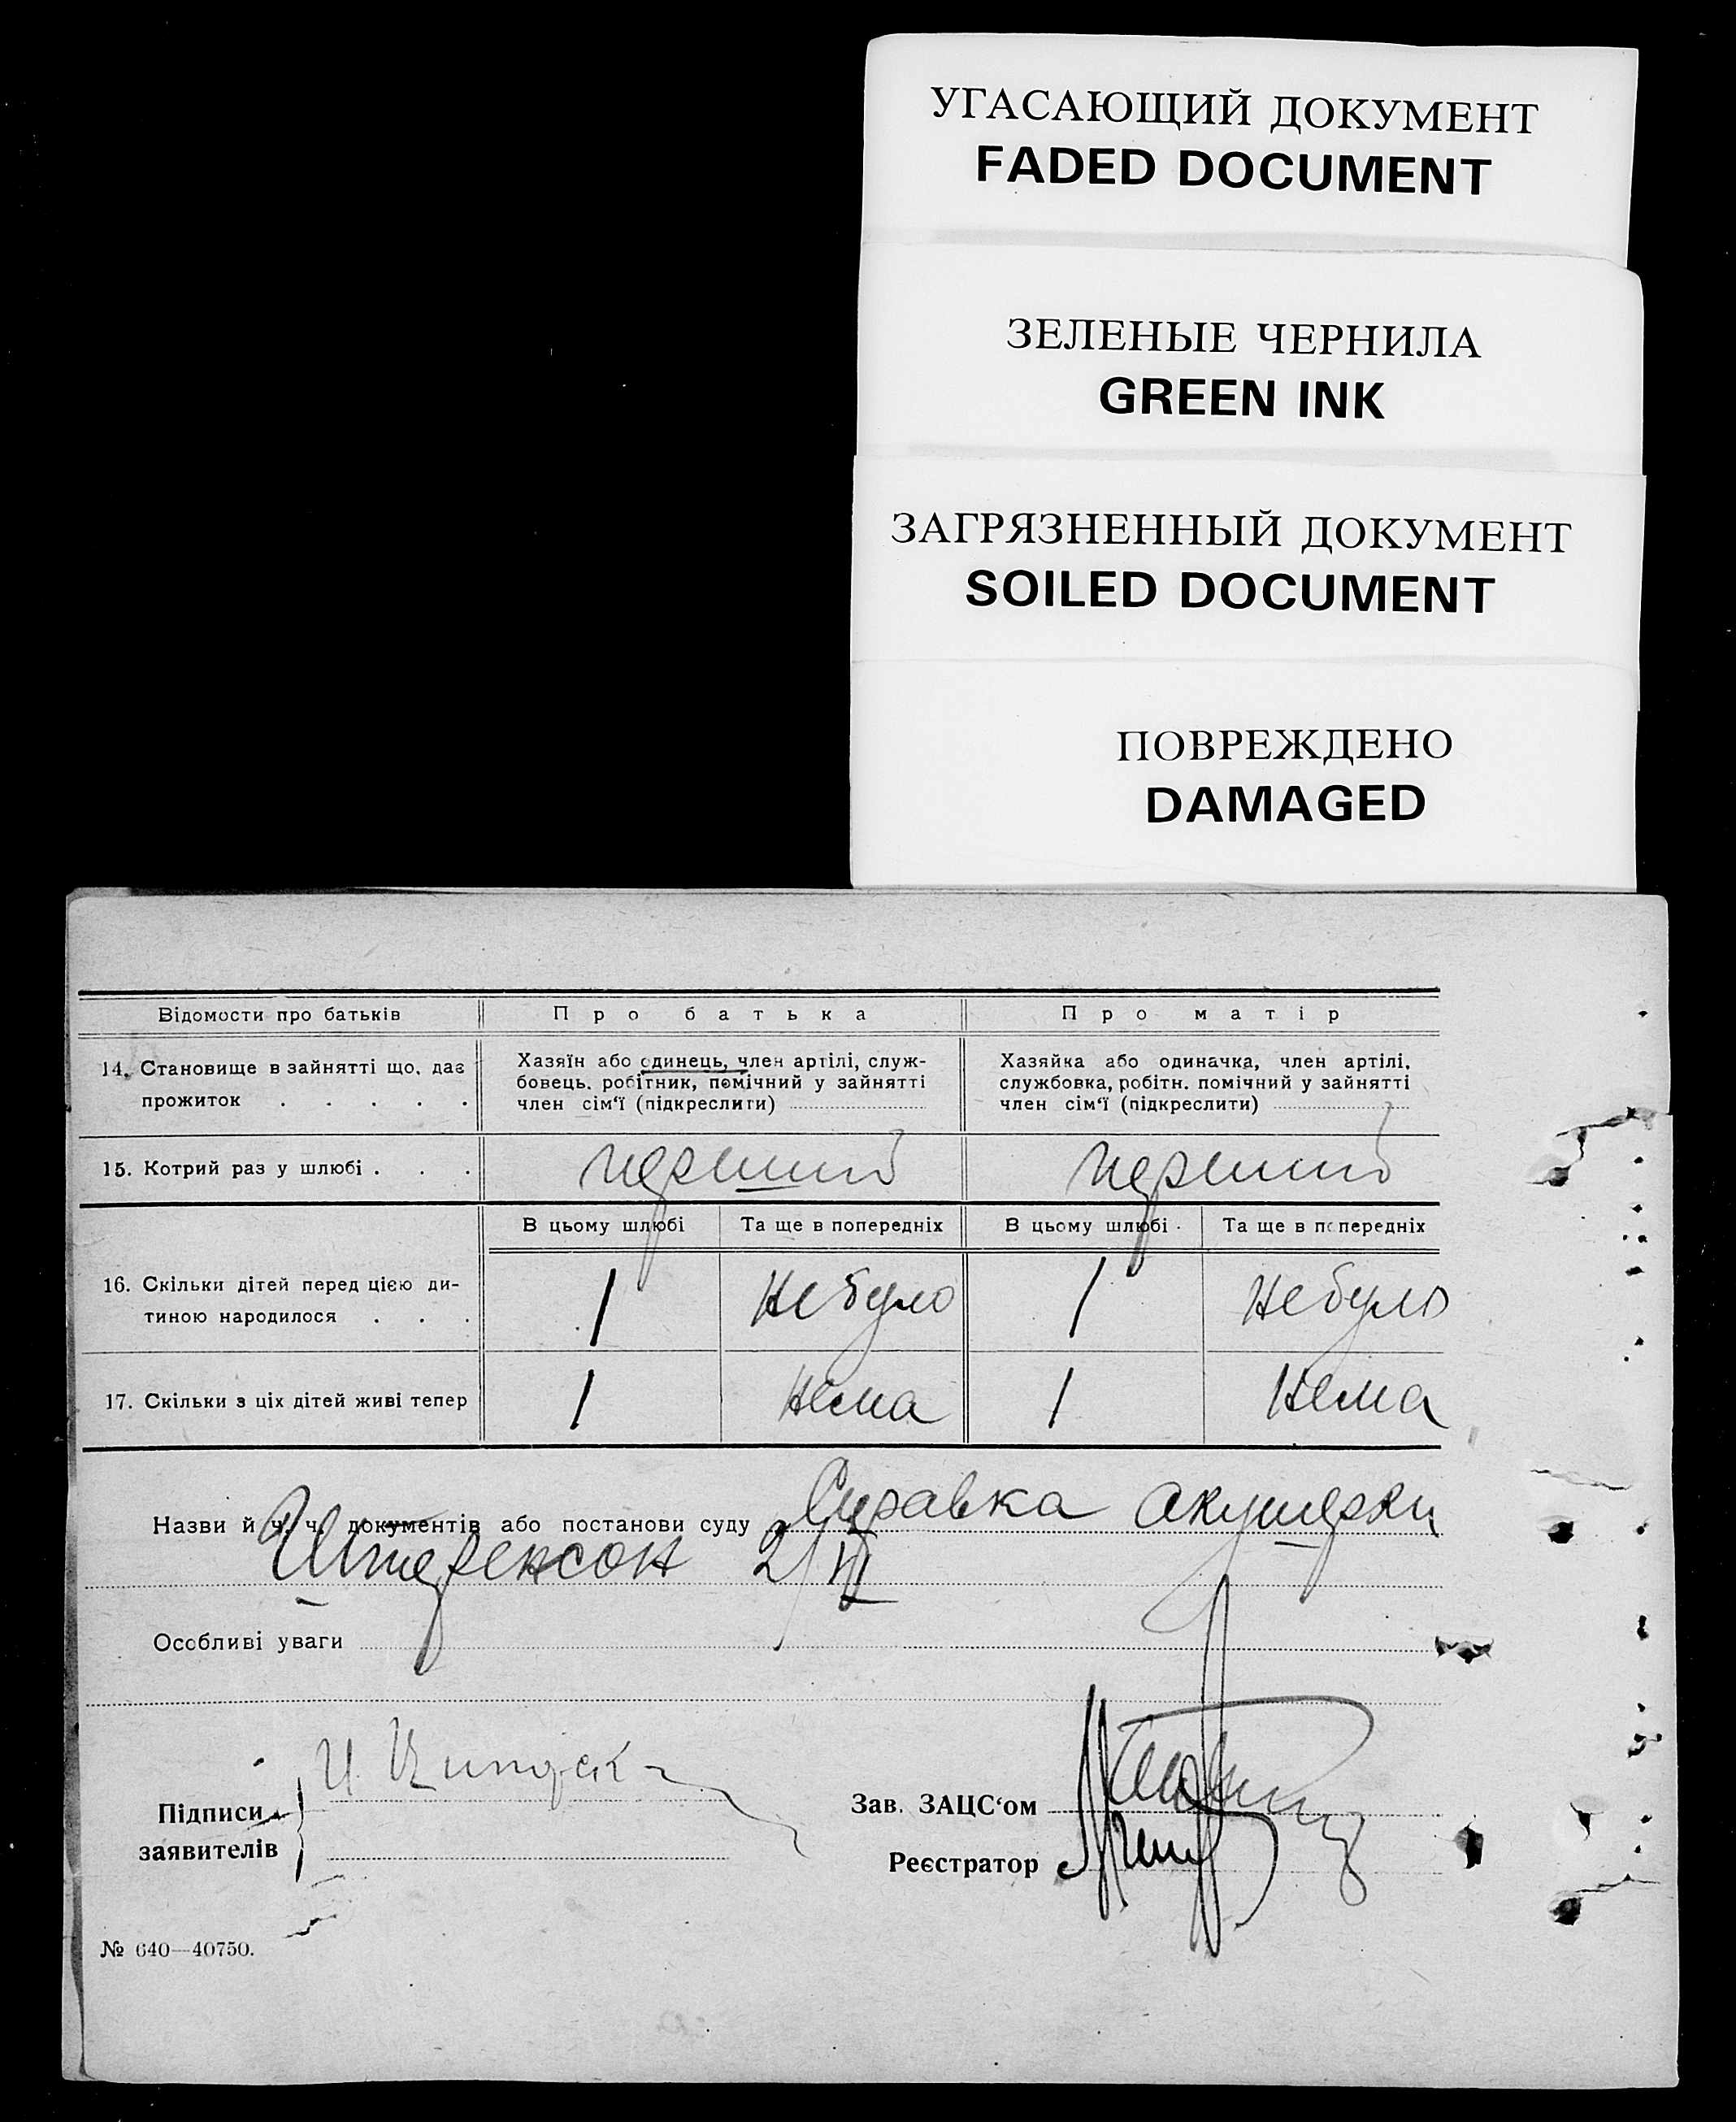 УГАСАЮЩИЙ ДОКУМЕНТ
FADED DOCUMENT
ЗЕЛЕНЫЕ ЧЕРНИЛА
GREEN INK
ЗАГРЯЗНЕННЫЙ ДОКУМЕНТ
SOILED DOCUMENT
ПОВРЕЖДЕНО
DAMAGED
Відомости про батьків
Про батька
Про матір
14. Становище в зайнятті що, дає
прожиток . . . . .
Хазяїн або одинець, член артілі, служ-
бовець, робітник, помічний у зайнятті
член сім‘ї (підкреслити)
Хазяйка або одиначка, член артілі,
службовка, робітн. помічний у зайнятті
член сім‘ї (підкреслити)
15. Котрий раз у шлюбі . . .
перший
перший
В цьому шлюбі
Та ще в попередніх
В цьому шлюбі
Та ще в попередніх
16. Скільки дітей перед цією ди-
тиною народилося . . .
1
Не було
1
Не було
17. Скільки з ціх дітей живі тепер
1
Нема
1
Нема
Назви й ч. ч. документів або постанови суду Справка акушерки
Штеренсон 2/VI
Особливі уваги
Підписи
заявителів
Зав. ЗАЦС‘ом
Реєстратор
№ 640—40750.